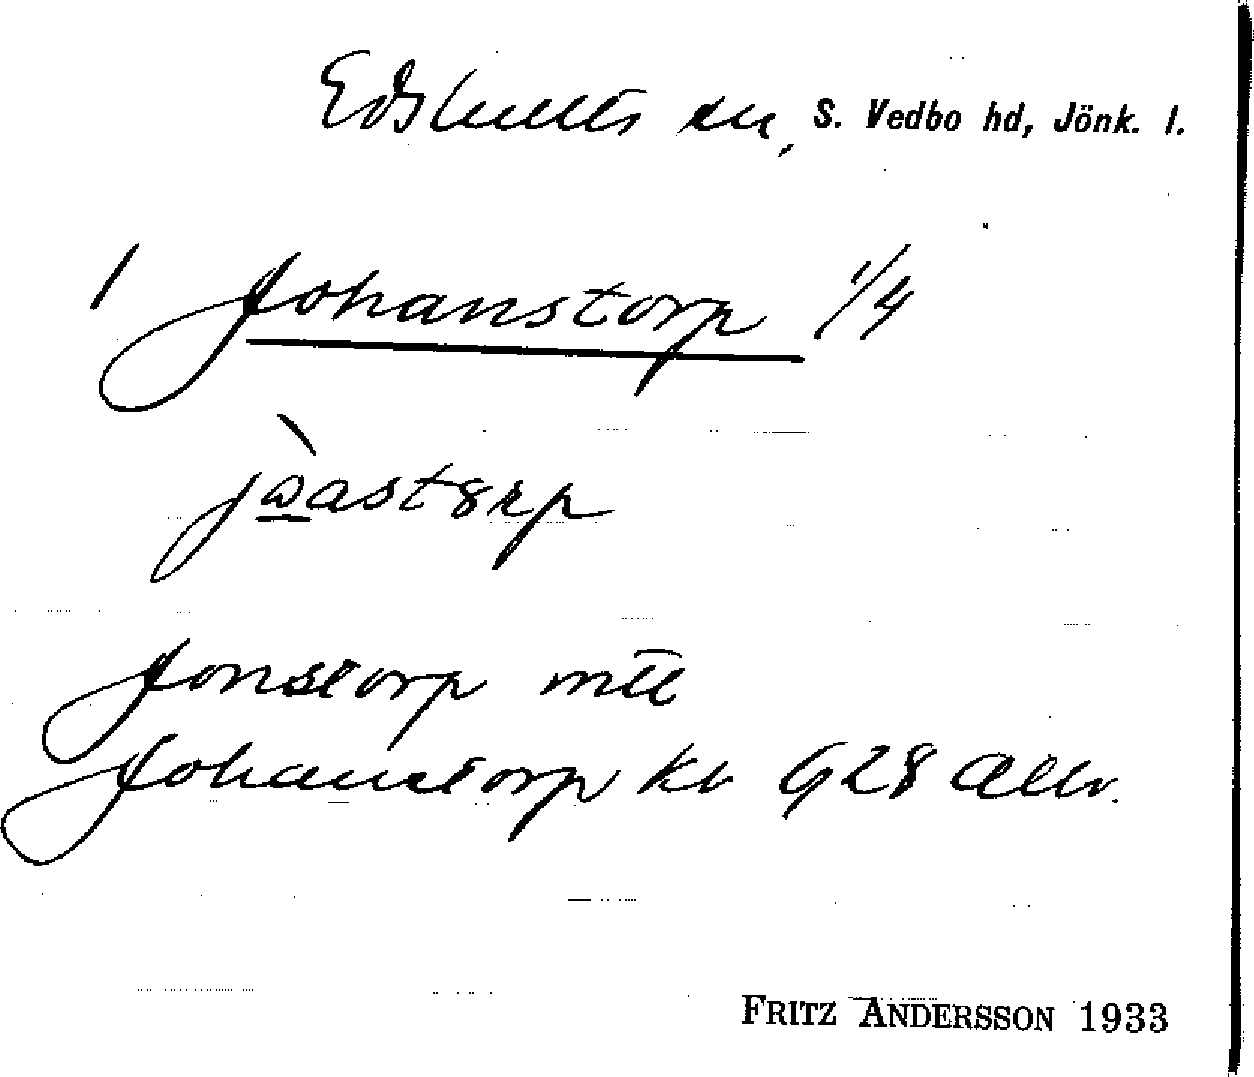 Edshults sn, S. Vedbo hd, Jönk. l.
1 Johanstorp 1/4
Jonstorp mtl
Johanstorp kb G28 Allv.
FRITZ ANDERSSON 1933